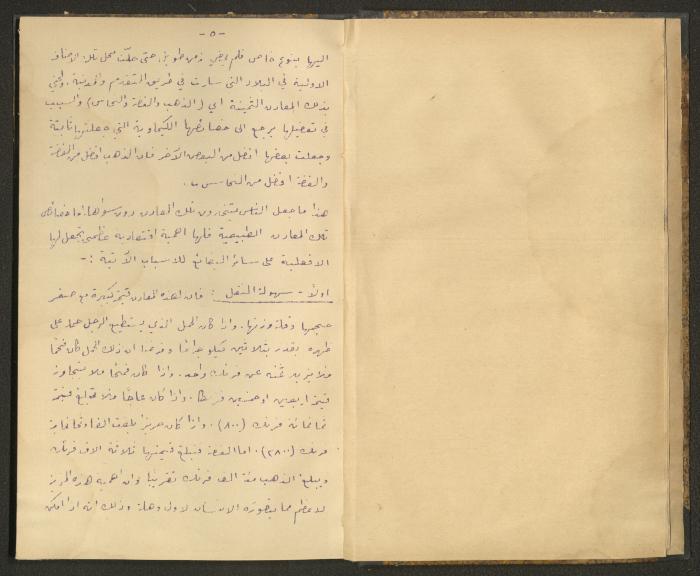 - ٥ -
اليها بنوع خاص فلم يمضِ زمن طويل حتى حلّت محل تلك الاصناف
الاولية في البلاد التي سارت في طريق التقدم والمدنية. واعني
بذلك المعادن الثمينة اي (الذهب والفضة والنحاس) والسبب
في تفضيلها يرجع الى خصائصها الكيماوية التي جعلتها ثابتة
وجعلت بعضها افضل من البعض الآخر فان الذهب افضل من الفضة
والفضة افضل من النحاس
هذا ما جعل الناس تلك المعادن دون سواها. اما خصائص
تلك المعادن الطبيعية فلها اهمية اقتصادية عظمى تجعل لها
الافضلية على سائر البضائع للاسباب الآتية :-
اولاً - سهولة النقل : فان لهذه المعادن قيمة كبيرة مع صغر
حجمها وقلة وزنها. واذا كان الحمل الذي يستطيع الرجل حمله على
ظهره يقدر بثلاثين كيلوجرامًا وفرضنا ان ذلك الحمل كان فحمًا
فلا يزيد ثمنه عن فرنك واحد. واذا كان قمحًا فلا تتجاوز
قيمته او خمسين فرنكًا. واذا كان عاجًا فلا تبلغ قيمته
ثمانمائة فرنك (٨٠٠). واذا كان حريرًا بلغت الفا وثمانماية
فرنك (٢٨٠٠). اما الفضة فتبلغ قيمتها ثلاثة الاف فرنك
ويبلغ الذهب مئة الف فرنك تقريبًا وان اهمية هذه المزية
لاعظم مما يتصوره الانسان لاول وهلة وذلك انه اذا امكن